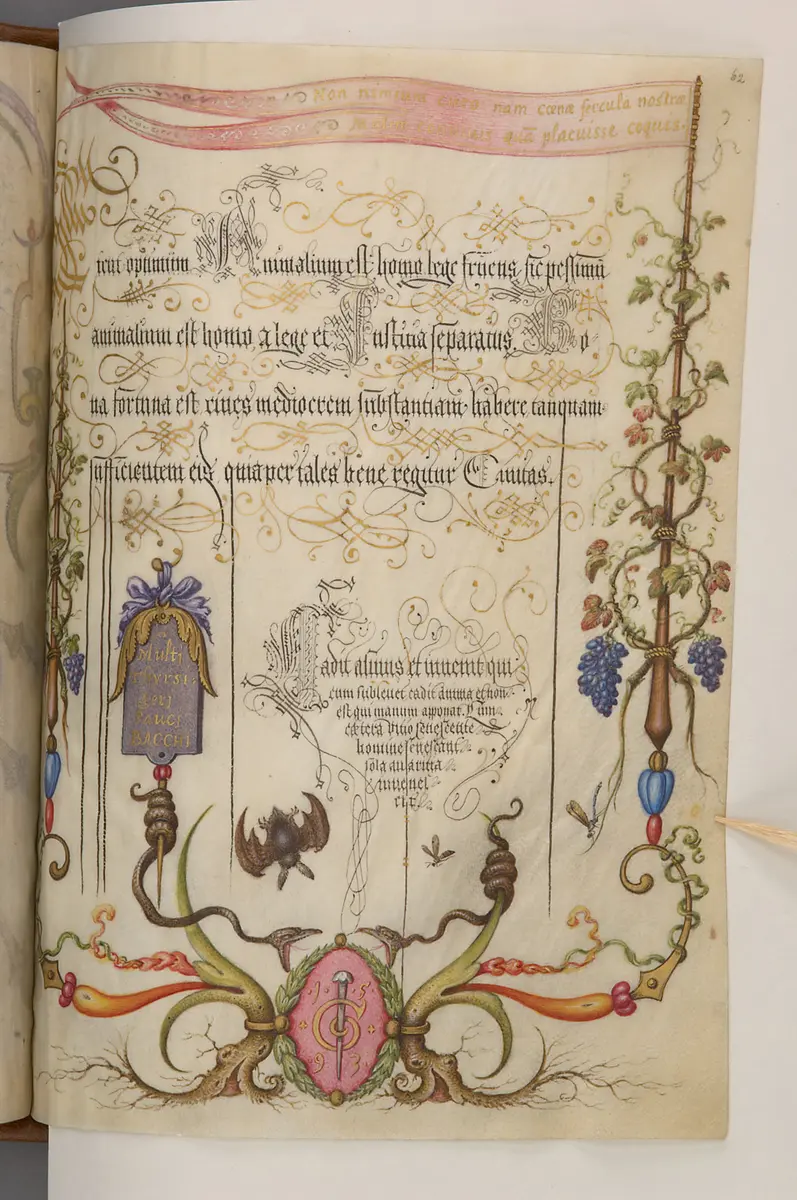 62
Non nimium curo nam coenæ fercula nostræ
Malim convivis quā placuisse coquis.
icut optimum Animalium est homo lege fruens, sic pessimū
animalium est homo, a lege et Iustitia separatus. Bo-
na fortuna est cives mediocrem substantiam habere tanquam
sufficientem eis quia per tales bene regitur Civitas.
Multi
thyrsi-
geri
pauci
BACCHI
Cadit asinus et invenit qui
eum sublevet cadit anima et non
est qui manum apponat. Cum
cætera vitio senescente
homine senescant
sola avaritia
iuvenes
cit.
15
G
93